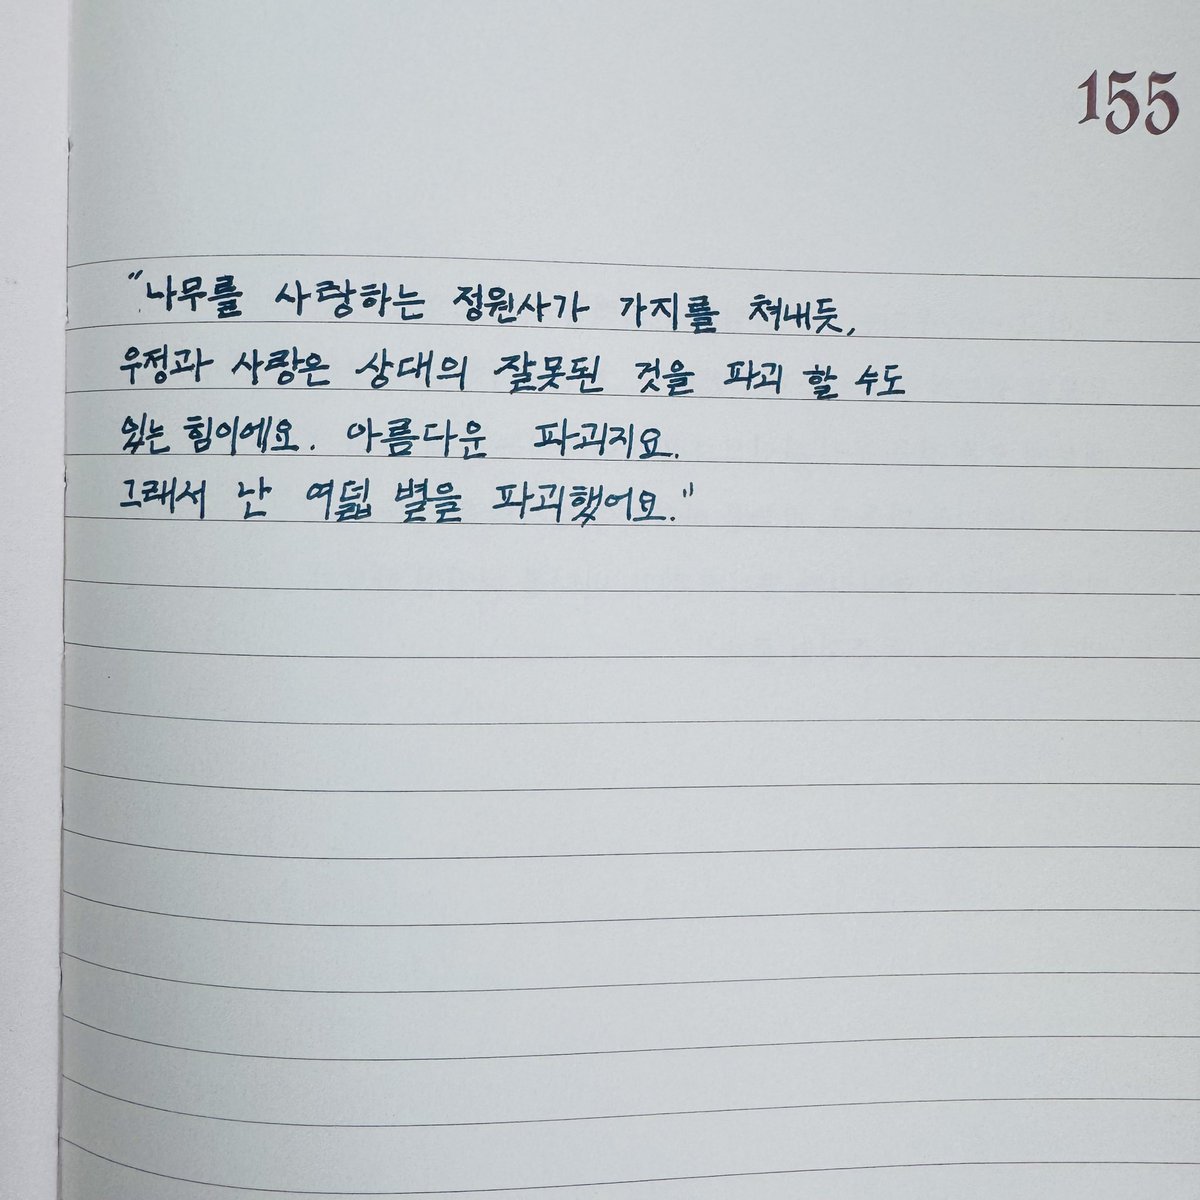 155
"나무를 사랑하는 정원사가 가지를 쳐내듯,
우정과 사랑은 상대의 잘못된 것을 파괴 할 수도
있는 힘이에요. 아름다운 파괴지요.
그래서 난 여덟 별을 파괴했어요."